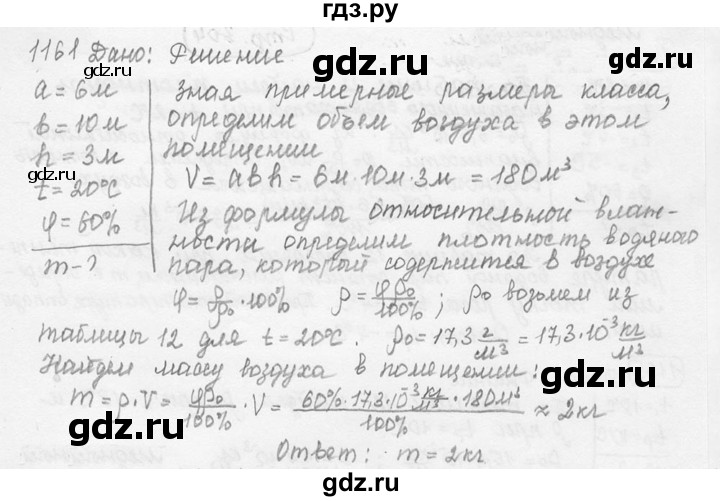 гдз.ру
1161 Дано: Решение
a = 6м зная примерные размеры класса,
в = 10м определим объем воздуха в этом
h = 3м помещении
t = 20°C V = a b h = 6м · 10м · 3м = 180м³
φ = 60% Из формулы относительной влаж-
m - ? ности определим плотность водяного
пара, который содержится в воздухе
φ = ρ/ρ₀ · 100% ρ = φρ₀/100% ; ρ₀ возьмем из
таблицы 12 для t = 20°C. ρ₀ = 17,3 г/м³ = 17,3 · 10³ кг/м³
Найдем массу воздуха в помещении:
m = ρ · V = φρ₀/100% · V = 60% · 17,3 · 10⁻³ кг/м³ · 180м³/100% ≈ 2кг
Ответ: m = 2кг
gdz.ru
gdz.ru
gdz.ru
gdz.ru
gdz.ru
gdz.ru
gdz.ru
gdz.ru
gdz.ru
gdz.ru
gdz.ru
gdz.ru
gdz.ru